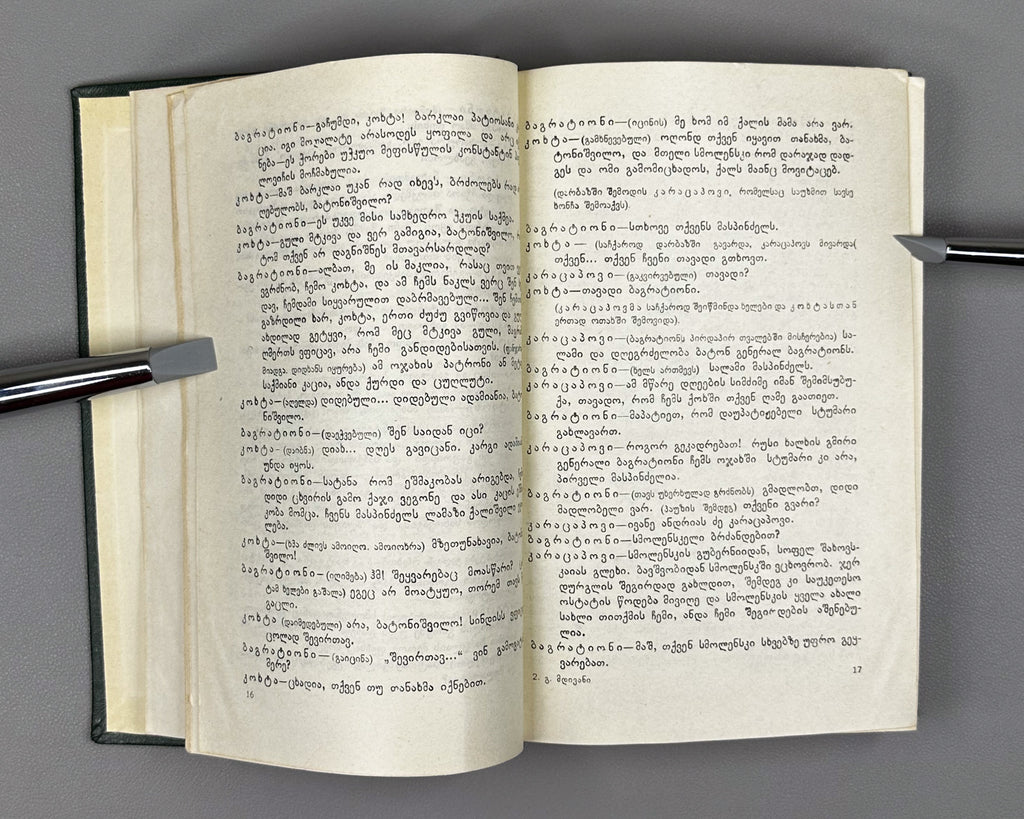 ბაგრატიონი—გაჩუმდი, კოხტა! ბარკლაი პატიოსანი
ცია. იგი მოღალატე არასოდეს ყოფილა და არც
ნება—ეს ქორები უჭკუო მეფისწულის კონსტანტინ
ლოვიჩის მოჩმახულია.
კოხტა—მაშ ბარკლაი უკან რად იხევს, ბრძოლებს რად
ღებულობს, ბატონიშვილო?
ბაგრატიონი—ეს უკვე მისი სამხედრო ჭკუის საქმეა.
კოხტა—გული მტკივა და ვერ გამიგია, ბატონიშვილო,
ტომ თქვენ არ დაგნიშნეს მთავარსარდლად?
ბაგრატიონი—ალბათ, მე ის მაკლია, რასაც თვით
ვგრძნობ, ჩემო კოხტა, და ამ ჩემს ნაკლს ვერც შენ
დავ, ჩემდამი სიყვარულით დაბრმავებული... შენ ჩემი
გაზრდილი ხარ, კოხტა, ერთი ძუძუ გვიწოვია და
ახდილად გეტყვი, რომ მეც მტკივა გული,
ღმერთს ვფიცავ, არა ჩემი განდიდებისათვის.
მიადგა. დიდხანს იყურება) ამ ოჯახის პატრონი ან
საქმიანი კაცია, ანდა ქურდი და ცუღლუტი.
კოხტა—(აღელდა) დიდებული... დიდებული ადამიანია,
ნიშვილო.
ბაგრატიონი—(დაეჭვებული) შენ საიდან იცი?
კოხტა—(დაიბნა) დიახ... დღეს გავიცანი. კარგი
უნდა იყოს.
ბაგრატიონი—სატანა რომ ეშმაკობას არიგებდა,
დიდი ცხვირის გამო ქაჯი ვეგონე და ასი კაცის
კობა მომცა. ჩვენს მასპინძელს ლამაზი ქალიშვილი
ლება.
კოხტა—(ხმა ძლივს ამოიღო. ამოიოხრა) მზეთუნახავია,
შვილო!
ბაგრატიონი—(იღიმება) ჰმ! შეყვარებაც მოასწარი?
ტამ ხელები გაშალა) ეგეც არ მოატყუო, თორემ თავს
გაცლი.
კოხტა (დაიმედებული) არა, ბატონიშვილო! სინდისს
ცოლად შევირთავ.
ბაგრატიონი—(გაიცინა) „შევირთავ...“ ვინ
მერე?
კოხტა—ცხადია, თქვენ თუ თანახმა იქნებით.
16
ბაგრატიონი—(იცინის) მე ხომ იმ ქალის მამა არა ვარ.
კოხტა—(გამხნევებული) ოღონდ თქვენ იყავით თანახმა, ბა-
ტონიშვილო, და მთელი სმოლენსკი რომ დარაჯად დად-
გეს და ომი გამომიცხადოს, ქალს მაინც მოვიტაცებ.
(დარბაზში შემოდის კარაცაპოვი, რომელსაც საუზმით სავსე
ხონჩა შემოაქვს).
ბაგრატიონი—სთხოვე თქვენს მასპინძელს.
კოხტა — (საჩქაროდ დარბაზში გავარდა, კარაცაპოვს მივარდა(
თქვენ... თქვენ ჩვენი თავადი გთხოვთ.
კარაცაპოვი—(გაკვირვებული) თავადი?
კოხტა—თავადი ბაგრატიონი.
(კარაცაპოვმა საჩქაროდ შეიწმინდა ხელები და კოხტასთან
ერთად ოთახში შემოვიდა).
კარაცაპოვი—(ბაგრატიონს პირდაპირ თვალებში მისჩერებია) სა-
ლამი და დღეგრძელობა ბატონ გენერალ ბაგრატიონს.
ბაგრატიონი—(ხელს ართმევს) სალამი მასპინძელს.
კარაცაპოვი—ამ მწარე დღეების სიმძიმე იმან შემიმსუბუ-
ქა, თავადო, რომ ჩემს ქოხში თქვენ ღამე გაათიეთ.
ბაგრატიონი—მაპატიეთ, რომ დაუპატიჟებელი სტუმარი
გახლავართ.
კარაცაპოვი—როგორ გეკადრებათ! რუსი ხალხის გმირი
გენერალი ბაგრატიონი ჩემს ოჯახში სტუმარი კი არა,
პირველი მასპინძელია.
ბაგრატიონი—(თავს უხერხულად გრძნობს) გმადლობთ, დიდი
მადლობელი ვარ. (პაუზის შემდეგ) თქვენი გვარი?
კარაცაპოვი—ივანე ანდრიას ძე კარაცაპოვი.
ბაგრატიონი—სმოლენსკელი ბრძანდებით?
კარაცაპოვი—სმოლენსკის გუბერნიიდან, სოფელ შახოვს-
კაიას გლეხი. ბავშვობიდან სმოლენსკში ვცხოვრობ. ჯერ
დურგლის შეგირდად გახლდით, შემდეგ კი საუკეთესო
ოსტატის წოდება მივიღე და სმოლენსკის ყველა ახალი
სახლი თითქმის ჩემი, ანდა ჩემი შეგირდების აშენებუ-
ლია.
ბაგრატიონი—მაშ, თქვენ სმოლენსკი სხვებზე უფრო გეყ-
ვარებათ.
2. გ. მდივანი
17